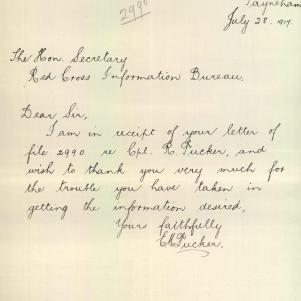 2990
Payneham
July 28. 1917.
The Hon. Secretary
Red Cross Information Bureau.
Dear Sir,
I am in receipt of your letter of
file 2990 re Cpl. R. Pucker, and
wish to thank you very much for
the trouble you have taken in
getting the information desired,
Yours faithfully
Pucker.